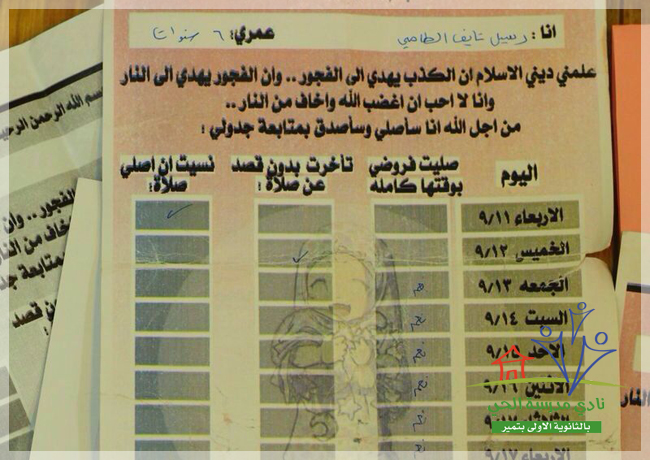 انا : رسيل نايف الطاحي عمري: ٦ سنوات
علمني ديني الاسلام ان الكذب يهدي الى الفجور .. وان الفجور يهدي الى النار
وانا لا احب ان اغضب الله واخاف من النار ..
من اجل الله انا سأصلي وسأصدق بمتابعة جدولي :
اليوم
صليت فروضي بوقتها كامله
تأخرت بدون قصد عن صلاة :
نسيت ان اصلي صلاة :
الاربعاء ٩/١١
الخميس ٩/١٢
الجمعه ٩/١٣
نعم
السبت ٩/١٤
نعم
الاحد ٩/١٥
نعم
الاثنين ٩/١٦
نعم
الثلاثاء ٩/١٧
نعم
الاربعاء ٩/١٧
بسم الله الرحمن الرحيم
الفجور .. وان
واخاف من النار
بمتابعة جدو
دون قصد
النار
نادي مدرسة الحي
بالثانوية الاولى بتمير